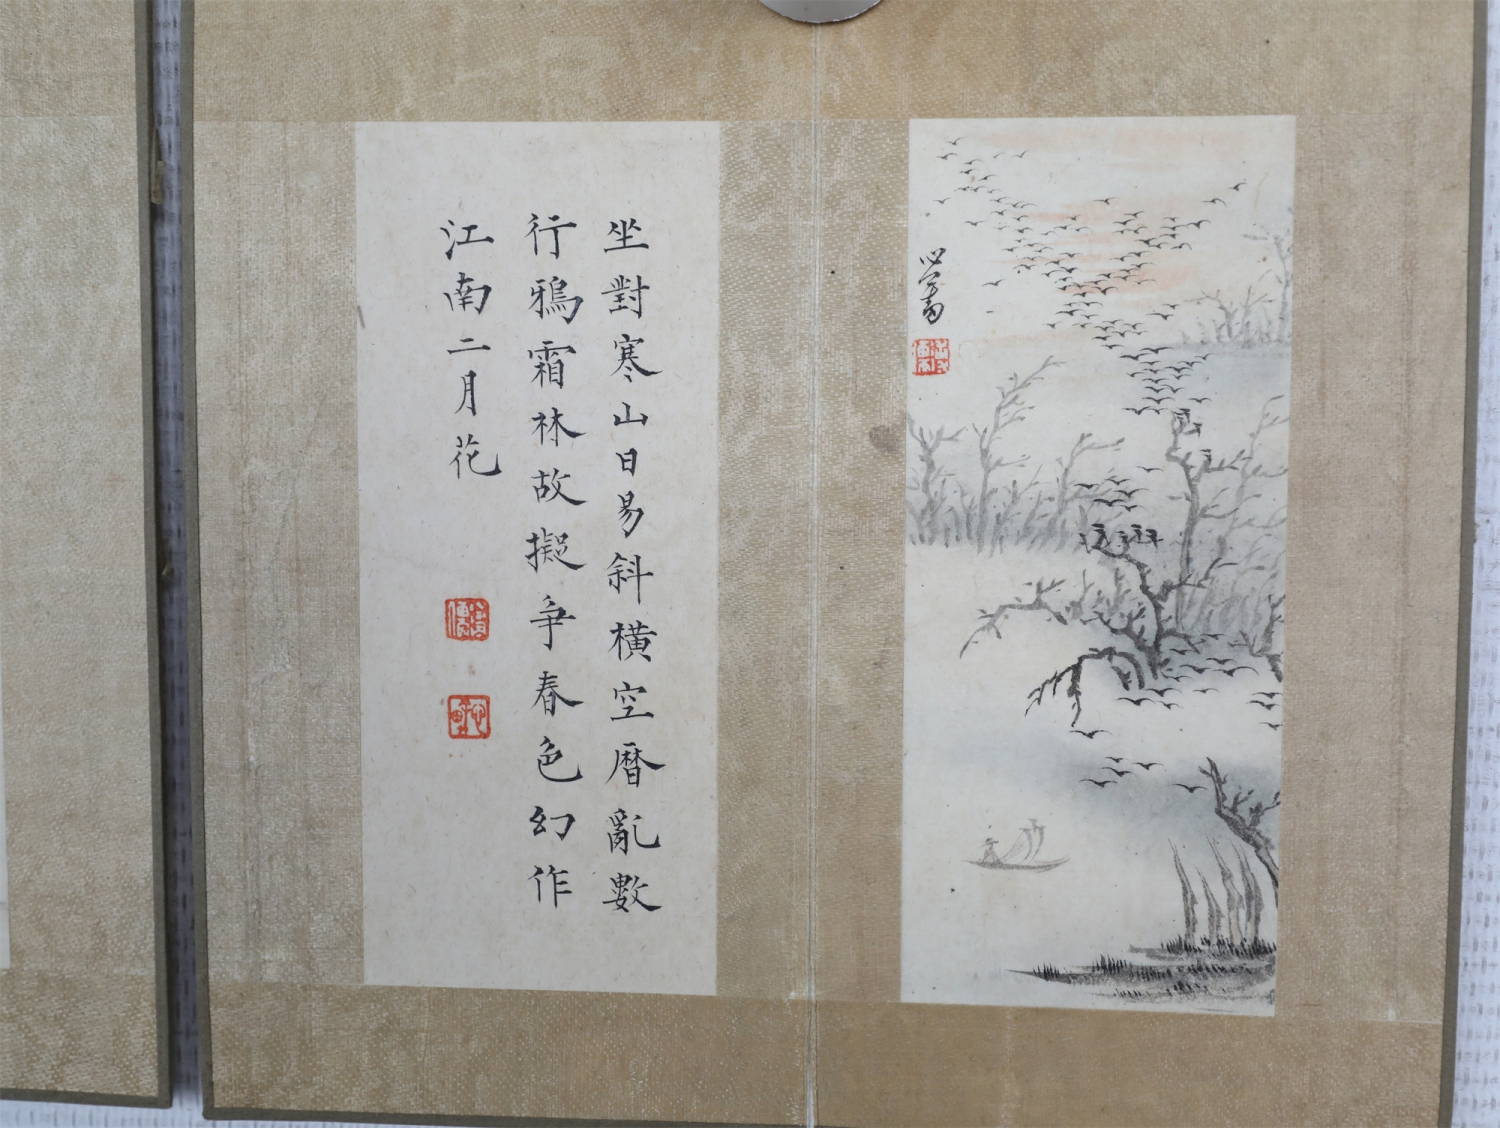 坐對寒山日易斜橫空曆亂數
行鴉霜林故擬爭春色幻作
江南二月花
心畬